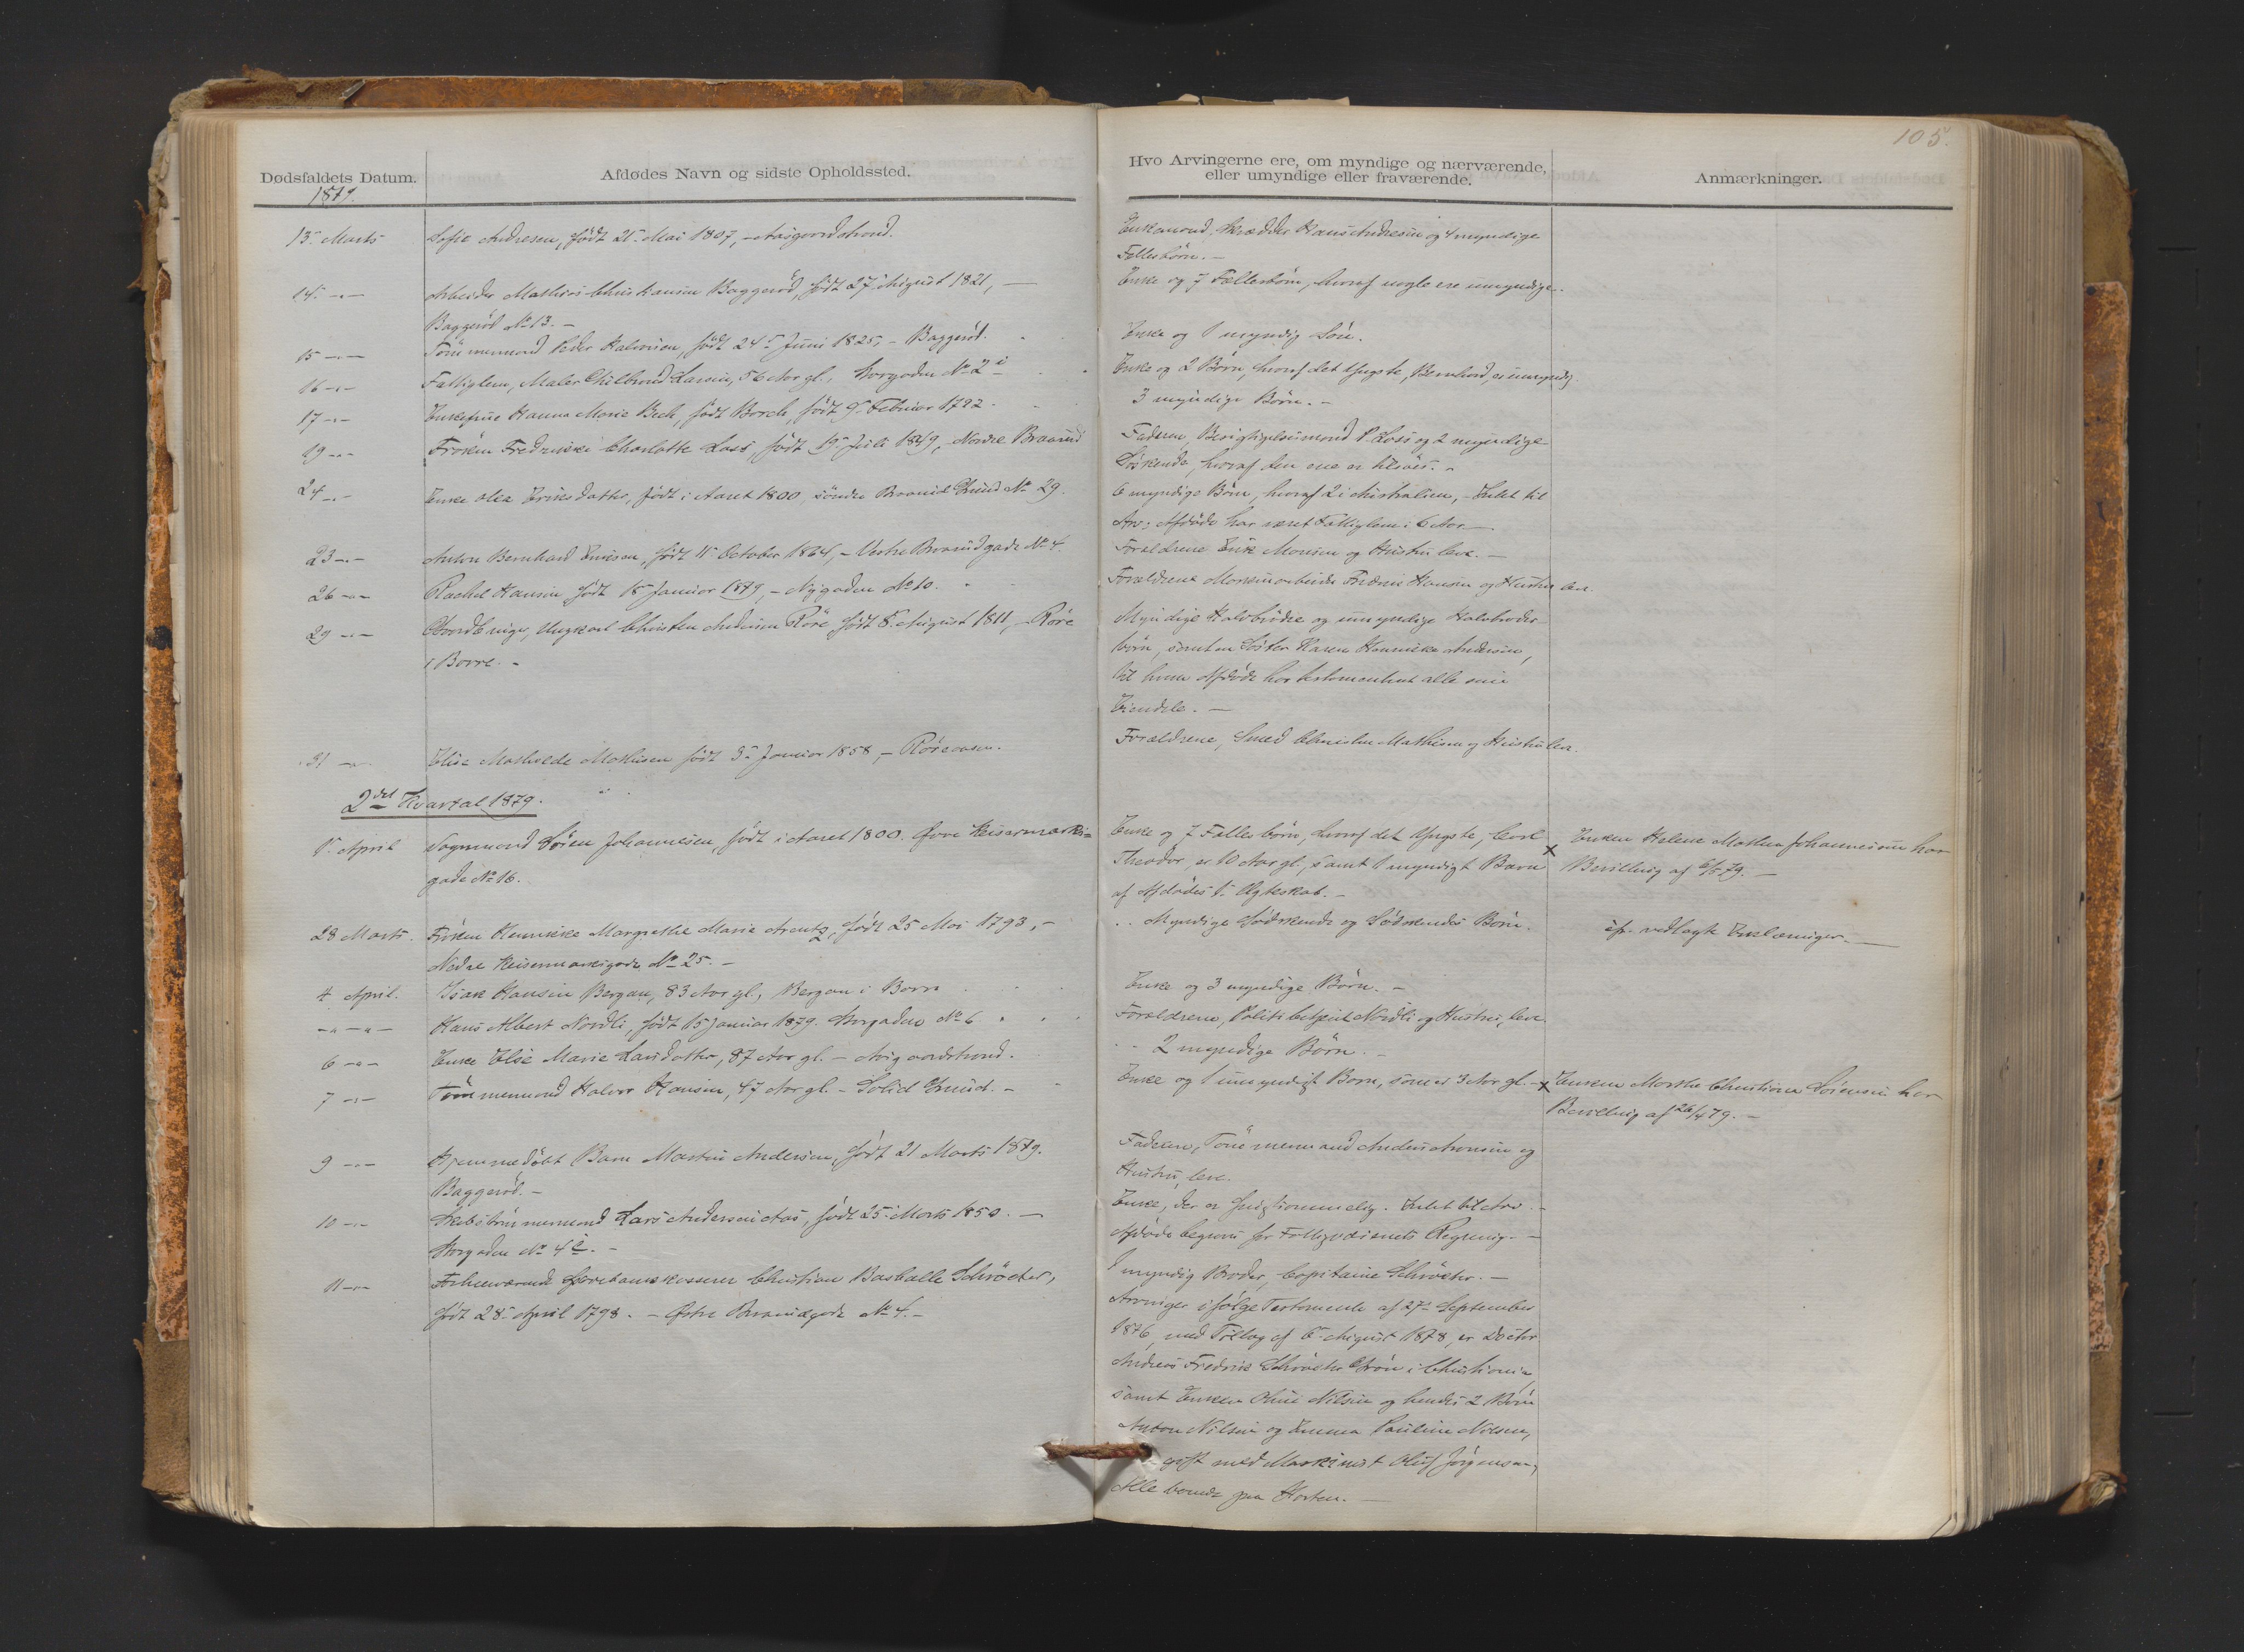 105.
Dødsfaldets Datum.
1879.
Afdødes Navn og sidste Opholdssted.
Hvo Arvingerne ere, om myndige og nærværende,
eller umyndige eller fraværende.
Anmærkninger.
13. Marts
Sofie Andresen, født 21. Mai 1807, - Aasgaardstrand.
Enkemand, Skrædder Hans Andresen og 4 myndige
Fællesbörn. -
14. -"-
Arbeider Mathias Christiansen Baggeröd, født 27 August 1821, -
Baggeröd No 13. -
Enke og 7 Fællesbörn, hvoraf nogle ere umyndige.
15 -"-
Tömmermand Peder Halvorsen, født 24 Juni 1825, - Baggeröd.
Enke og 1 myndig Sön.
16 -"-
Fattiglem, Maler Larsen, 56 Aar gl., Storgaden No 2
Enke og 2 Börn, hvoraf det Yngste, Bernhard, er umyndig
17 -"-
Enkefrue Hanna Marie Bech, født Borch, født 9 Februar 1792.
3 myndige Börn. -
19 -"-
Fröken Fredrikke Charlotte Lass, født 19 Juli 1849, Nordre Braarud
Faderen, Besigtigelsesmand P. Lass og 2 myndige
Söskende, hvoraf den ene er tilsöes. -
24 -"-
Enke Olea Eriksdatter, født i Aaret 1800, söndre Braarud Grund No 29.
6 myndige Börn, hvoraf 2 i Australien, - Intet til
Arv; Afdöde har været Fattiglem i 6 Aar. -
23 -"-
Anton Bernhard Eriksen, født 11 October 1864, - Vestre Braarudgade No 4.
Forældrene Erik Monsen og Hustru leve. -
26 -"-
Rachel Hansen født 15 Januar 1879, - Nygaden No 10.
Forældrene Maskinarbeider Fredrik Hansen og Hustru leve.
29 -"-
Gaardbruger, Ungkarl Christen Andersen Röre født 8. August 1811, - Röre
i Borre. -
Myndige Halvbrödre og umyndige Halvbroder-
börn, samt en Söster Karen Henrikke Andersen,
til hvem Afdöde har testamenteret alle sine
Eiendele. -
31 -"-
Elise Mathilde Mathisen født 3. Januar 1858, - Röreaasen.
Forældrene, Smed Christen Mathisen og Hustru leve.
2det Kvartal 1879.
1. April
Sagmand Sören Johannesen, født i Aaret 1800. Övre Keisermarks-
gade No 16.
Enke og 7 Fællesbörn, hvoraf det Yngste, Carl
Theodor, er 10 Aar gl., samt 1 myndigt Barn
af Afdödes 1. Ægteskab. -
x Enken Helene Mathea Johannesen har
Bevilling af 6/5 79. -
28 Marts.
Fröken Henrikke Margrethe Marie Arentz, født 25 Mai 1793, -
Nedre Keisermarksgade No 25. -
Myndige Södskende og Södskendes Börn.
ifr. vedlagte Erklæringer. -
4 April.
Isak Hansen Bergan, 83 Aar gl., Bergan i Borre
Enke og 3 myndige Börn. -
-"- -"-
Hans Albert Nordli, født 15 Januar 1879. Storgaden No 6.
Forældrene, Politibetjent Nordli og Hustru, leve.
6 -"-
Enke Else Marie Larsdatter, 87 Aar gl. - Aasgaardstrand.
2 myndige Börn. -
7 -"-
Tömmermand Halvor Hansen, 47 Aar gl. - Solid Grund. -
Enke og 1 umyndigt Barn, som er 3 Aar gl. -
x Enken Marthe Christiane Sörensen har
Bevilling af 26/4 79. -
9 -"-
Hjemmedöbt Barn Martin Andersen, født 21 Marts 1879.
Baggeröd. -
Faderen, Tömmermand Anders Aronsen og
Hustru, leve.
10 -"-
Skibstömmermand Lars Andersen Aas, født 25. Marts 1850. -
Storgaden No 4
Enke, der er frugtsommelig. Intet til Arv. -
Afdöde begraves for Fattigvæsenets Regning. -
11 -"-
Forhenværende Sparebankskasserer Christian Basballe Schröeter,
født 28. April 1798. - Östre Braarudgade No 4. -
1 myndig Broder, Capitaine Schröeter. -
Arvinger ifölge Testamente af 27. September
1876, med Tillæg af 6. August 1878, er Doctor
Andreas Fredrik Schröeter Grön i Christiania,
samt Enken Oline Nilsen og hendes 2 Börn
Anton Nilsen og Emma Pauline Nilsen,
gift med Maskinist Oluf Jörgensen,
Alle boende paa Horten. -